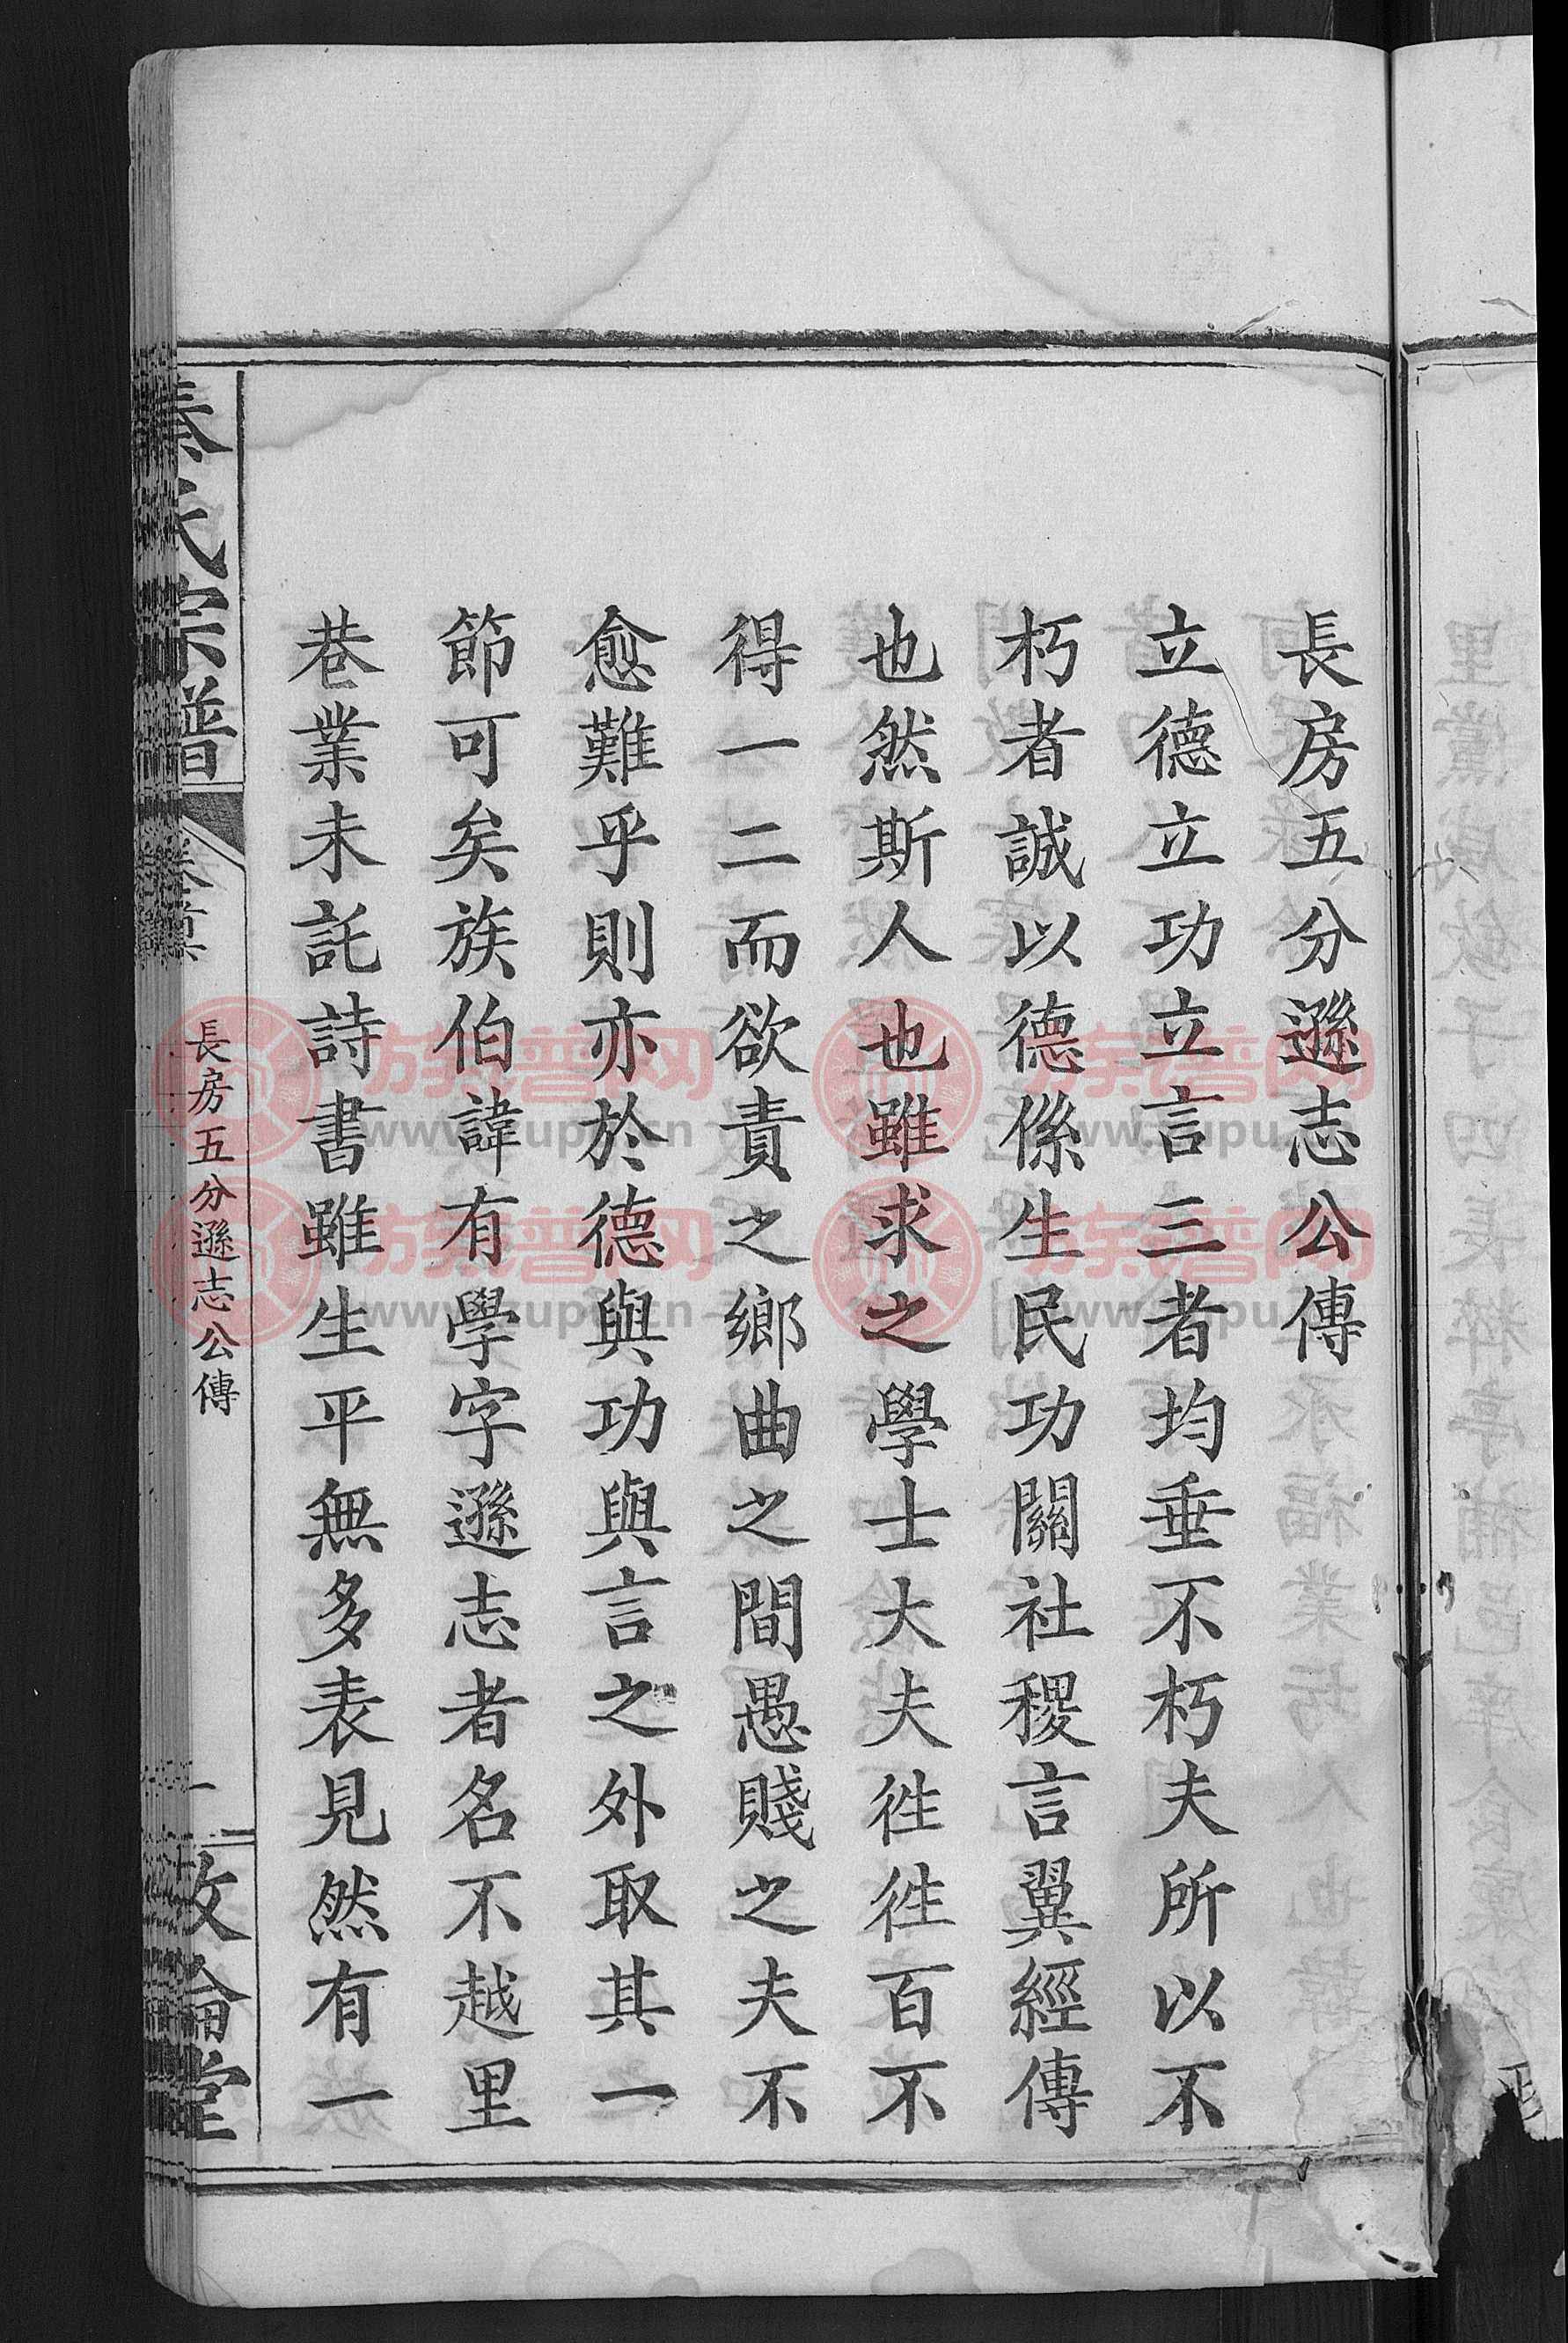 長房五分遜志公傳
立德立功立言三者均垂不朽夫所以不
朽者誠以德係生民功關社稷言翼經傳
也然斯人也雖求之學士大夫徃徃百不
得一二而欲責之鄉曲之間愚賤之夫不
愈難乎則亦於德與功與言之外取其一
節可矣族伯諱有學字遜志者名不越里
巷業未託詩書雖生平無多表見然有一
氏宗譜
卷首
長房五分遜志公傳
一
倫堂
族谱网
www.zupu.cn
族谱网
www.zupu.cn
族谱网
www.zupu.cn
族谱网
www.zupu.cn